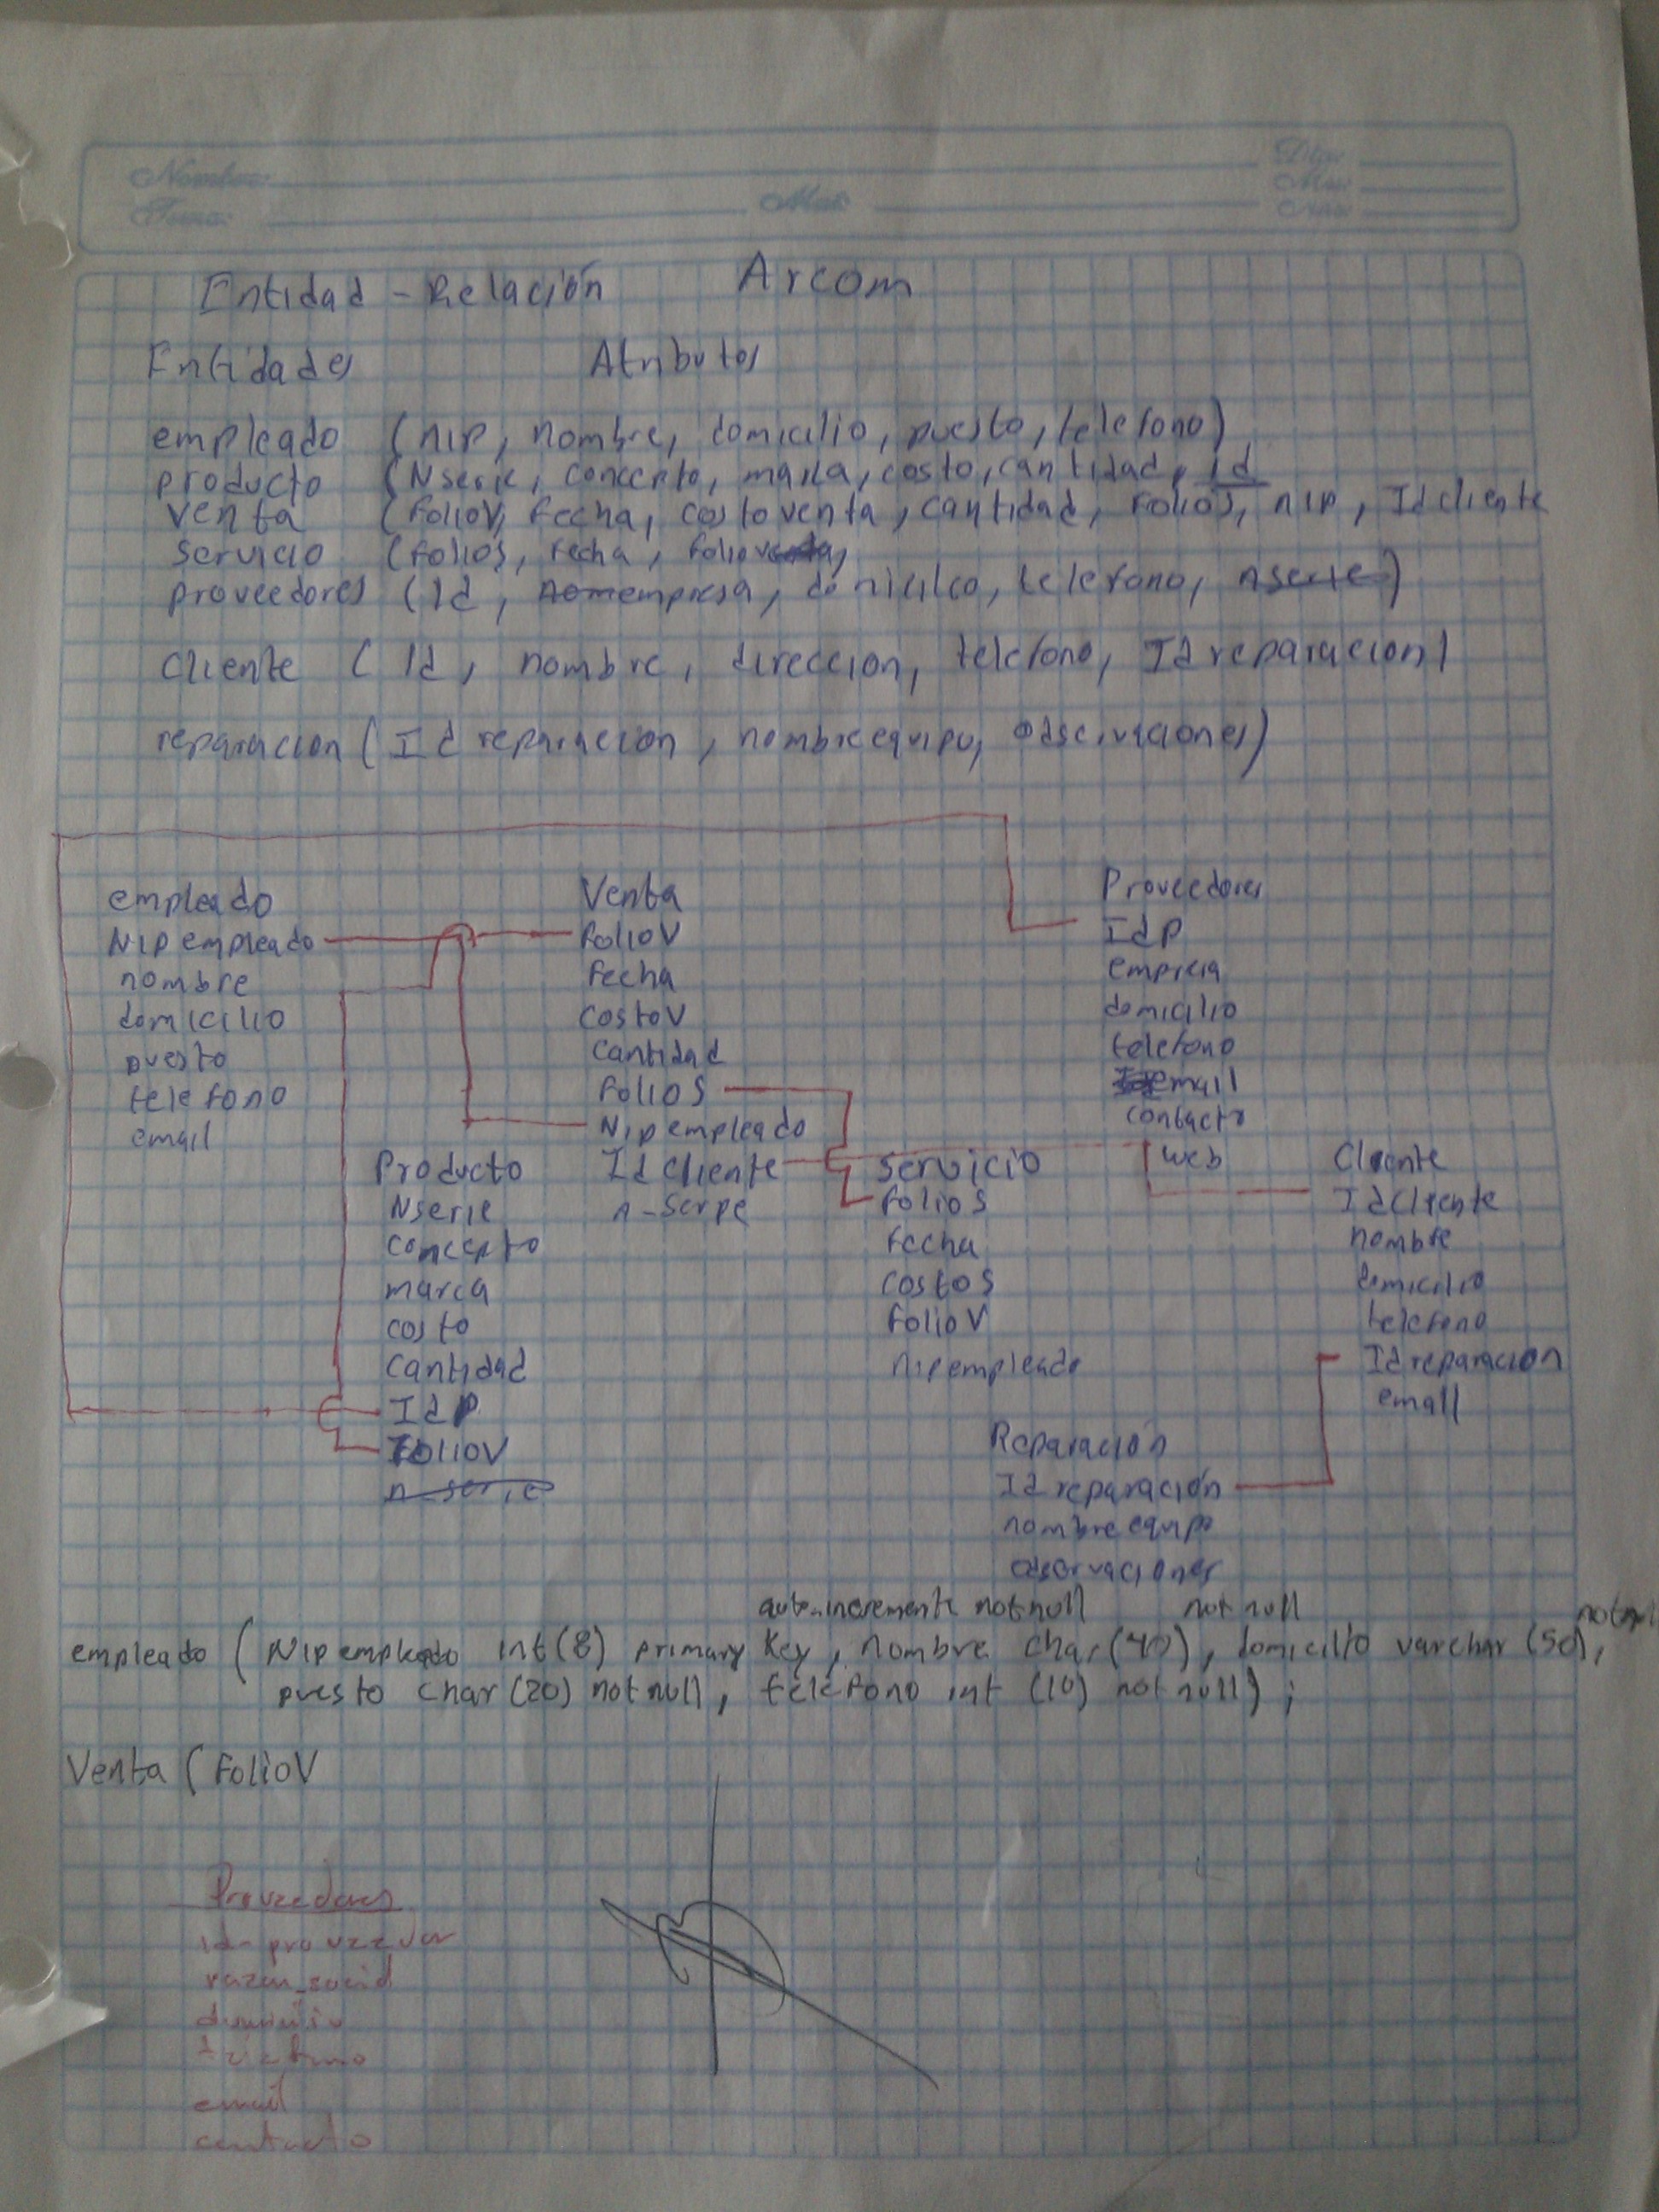 Nombre:
Tema:
Mat:
Día:
Mes:
Año:
Entidad - Relación Arcom
Entidades Atributos
empleado (nip, nombre, domicilio, puesto, telefono)
producto (Nserie, concepto, marca, costo, cantidad, Id
venta (folioV, fecha, costo venta, cantidad, folioS, nip, Id cliente
servicio (folioS, fecha, folioventa,
proveedores (Id, nomempresa, domicilio, telefono, nserie)
Cliente (Id, nombre, direccion, telefono, Id reparacion)
reparacion (Id reparacion, nombre equipo, observaciones)
empleado
NIP empleado
nombre
domicilio
puesto
telefono
email
Venta
folioV
fecha
costoV
cantidad
folioS
Nip empleado
Id Cliente
Proveedores
IdP
empresa
domicilio
telefono
email
contacto
web
Producto
Nserie
concepto
marca
costo
Cantidad
IdP
FolioV
n_serie
servicio
folioS
fecha
costoS
folioV
nipempleado
Cliente
Idcliente
nombre
domicilio
telefono
Id reparacion
email
Reparación
Id reparación
nombre equipo
observaciones
auto-incremente not null not null
empleado (Nip empleado int(8) primary Key, nombre char(40), domicilio varchar (50),
puesto char(20) not null, telefono int (10) not null);
Venta (FolioV
Proveedores
id-proveedor
razon_social
domicilio
telefono
email
contacto